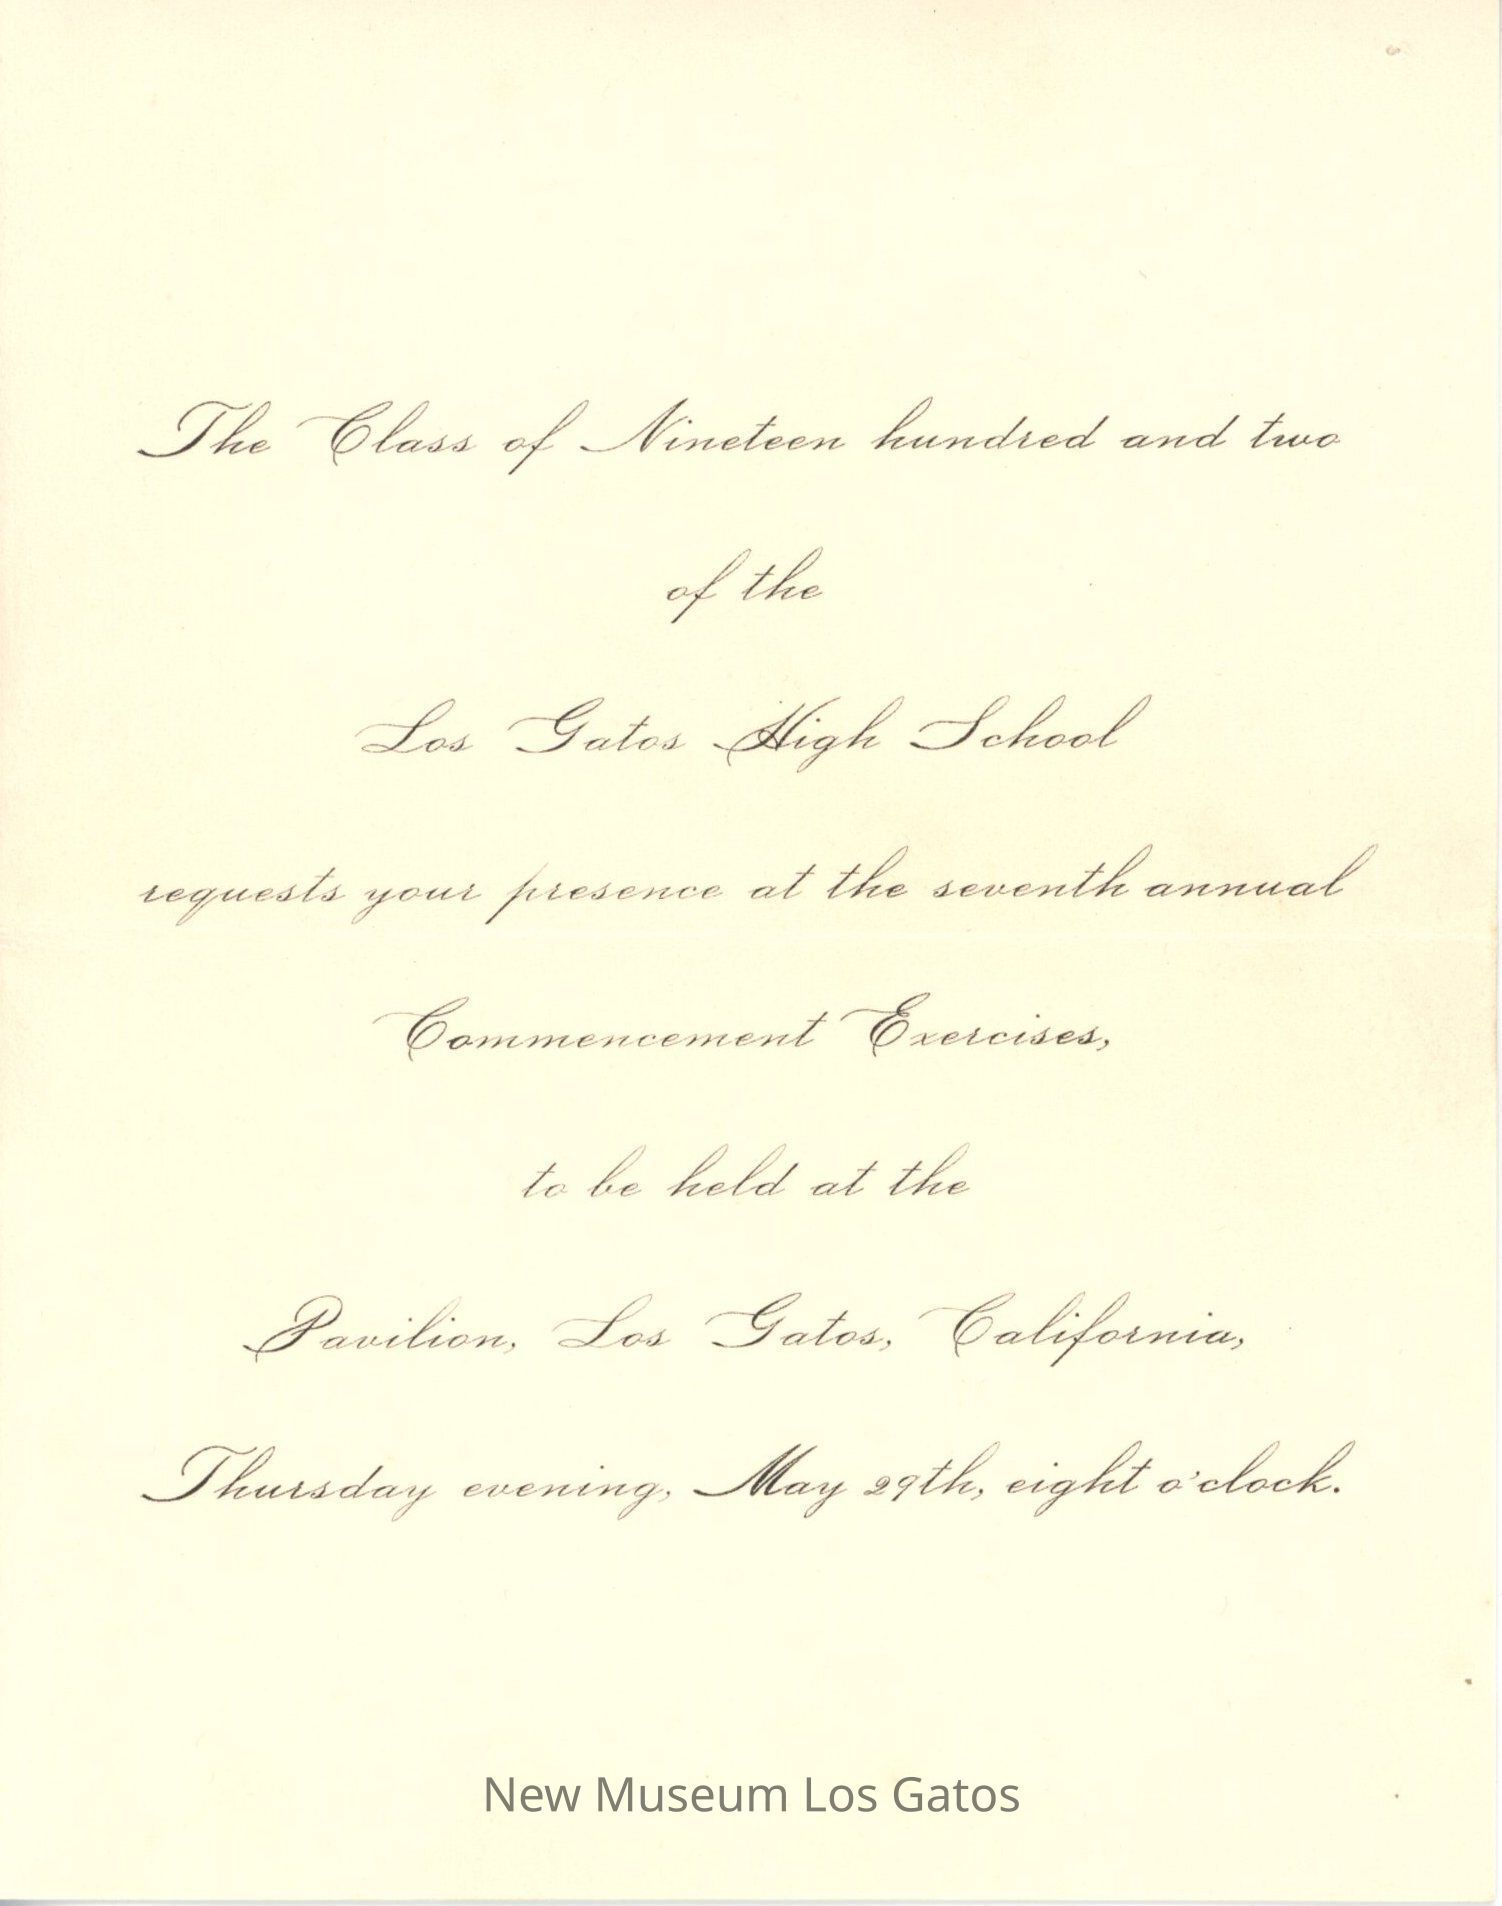 The Class of Nineteen hundred and two
of the
Los Gatos High School
requests your presence at the seventh annual
Commencement Exercises,
to be held at the
Pavilion, Los Gatos, California,
Thursday evening, May 29th, eight o'clock.
New Museum Los Gatos